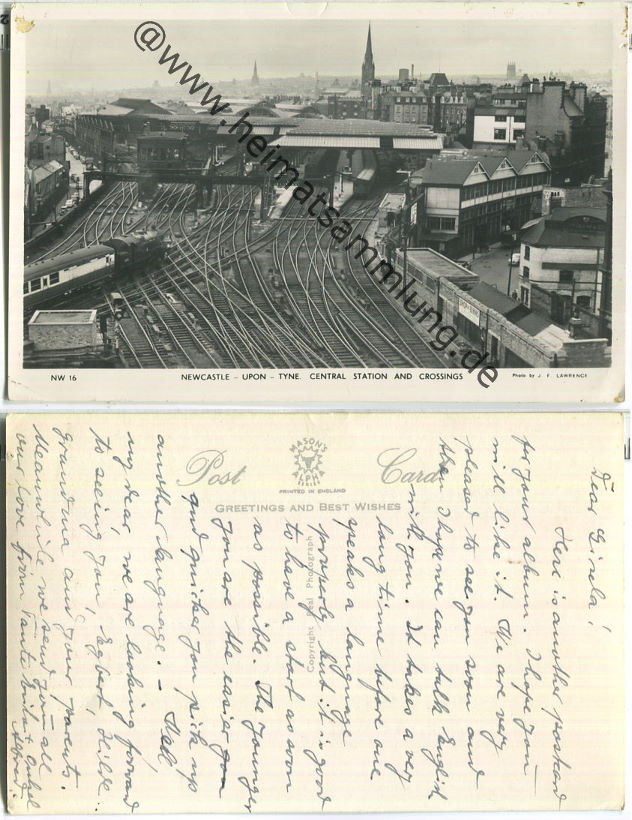 @www.heimatsammlung.de
NW 16
NEWCASTLE - UPON - TYNE. CENTRAL STATION AND CROSSINGS
Photo by J. F. LAWRENCE
Post Card
MASON'S
ALPHA
SERIES
PRINTED IN ENGLAND
GREETINGS AND BEST WISHES
Copyright Real Photograph
Dear Gisela!
Here is another postcard
for your album. I hope you
will like it. We are very
pleased to see you soon and
then I hope we can talk English
with you. It takes a very
long time before one
speaks a language
properly but it is good
to have a start as soon
as possible. The younger
you are the easier you
and quicker you pick up
another language. - Well
my dear, we are looking forward
to seeing you, Egbert, Hilde,
Grandma and your parents.
Meanwhile we send you all
our love from Tante & Onkel
Alfred.